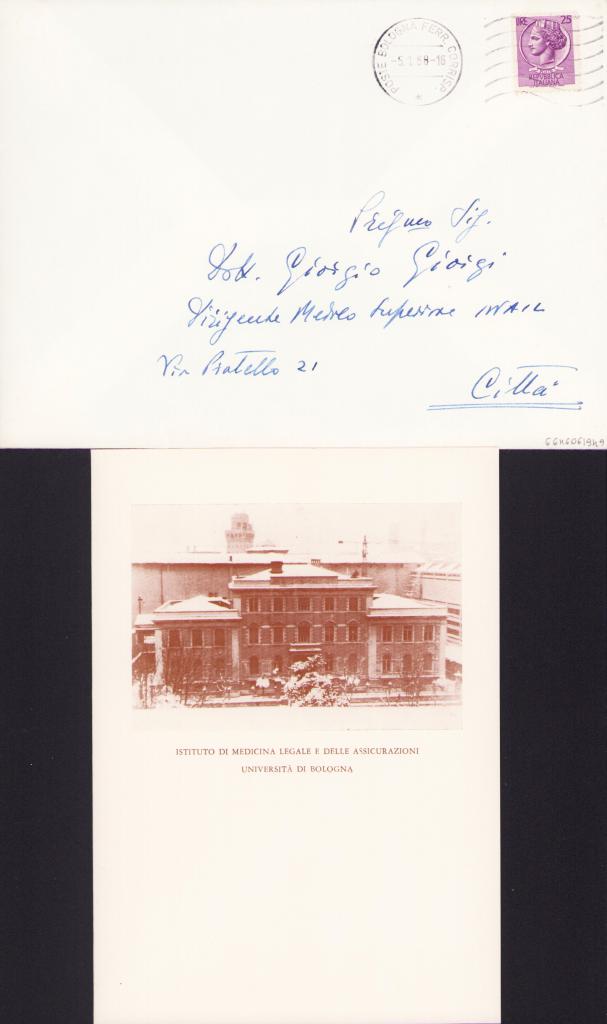 POSTE BOLOGNA FERR. CORRISP.
-5.1.68-16
LIRE 25
REPVBBLICA
ITALIANA
Sig.
Dott. Giorgio Giorgi
Dirigente Medico Superiore INAIL
Via Pratello 21
Città
ISTITUTO DI MEDICINA LEGALE E DELLE ASSICURAZIONI
UNIVERSITÀ DI BOLOGNA